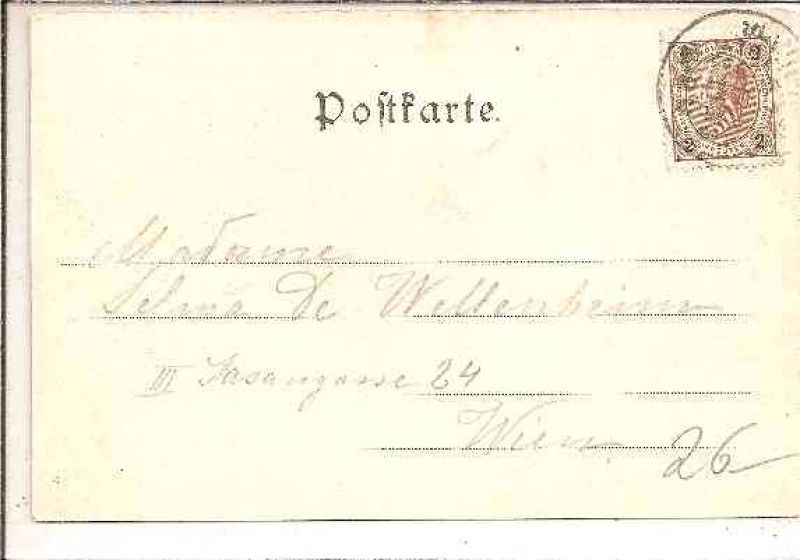 Postkarte.
2 2
Madame
Selma De Wellenheim
III Fasangasse 24
Wien.
26